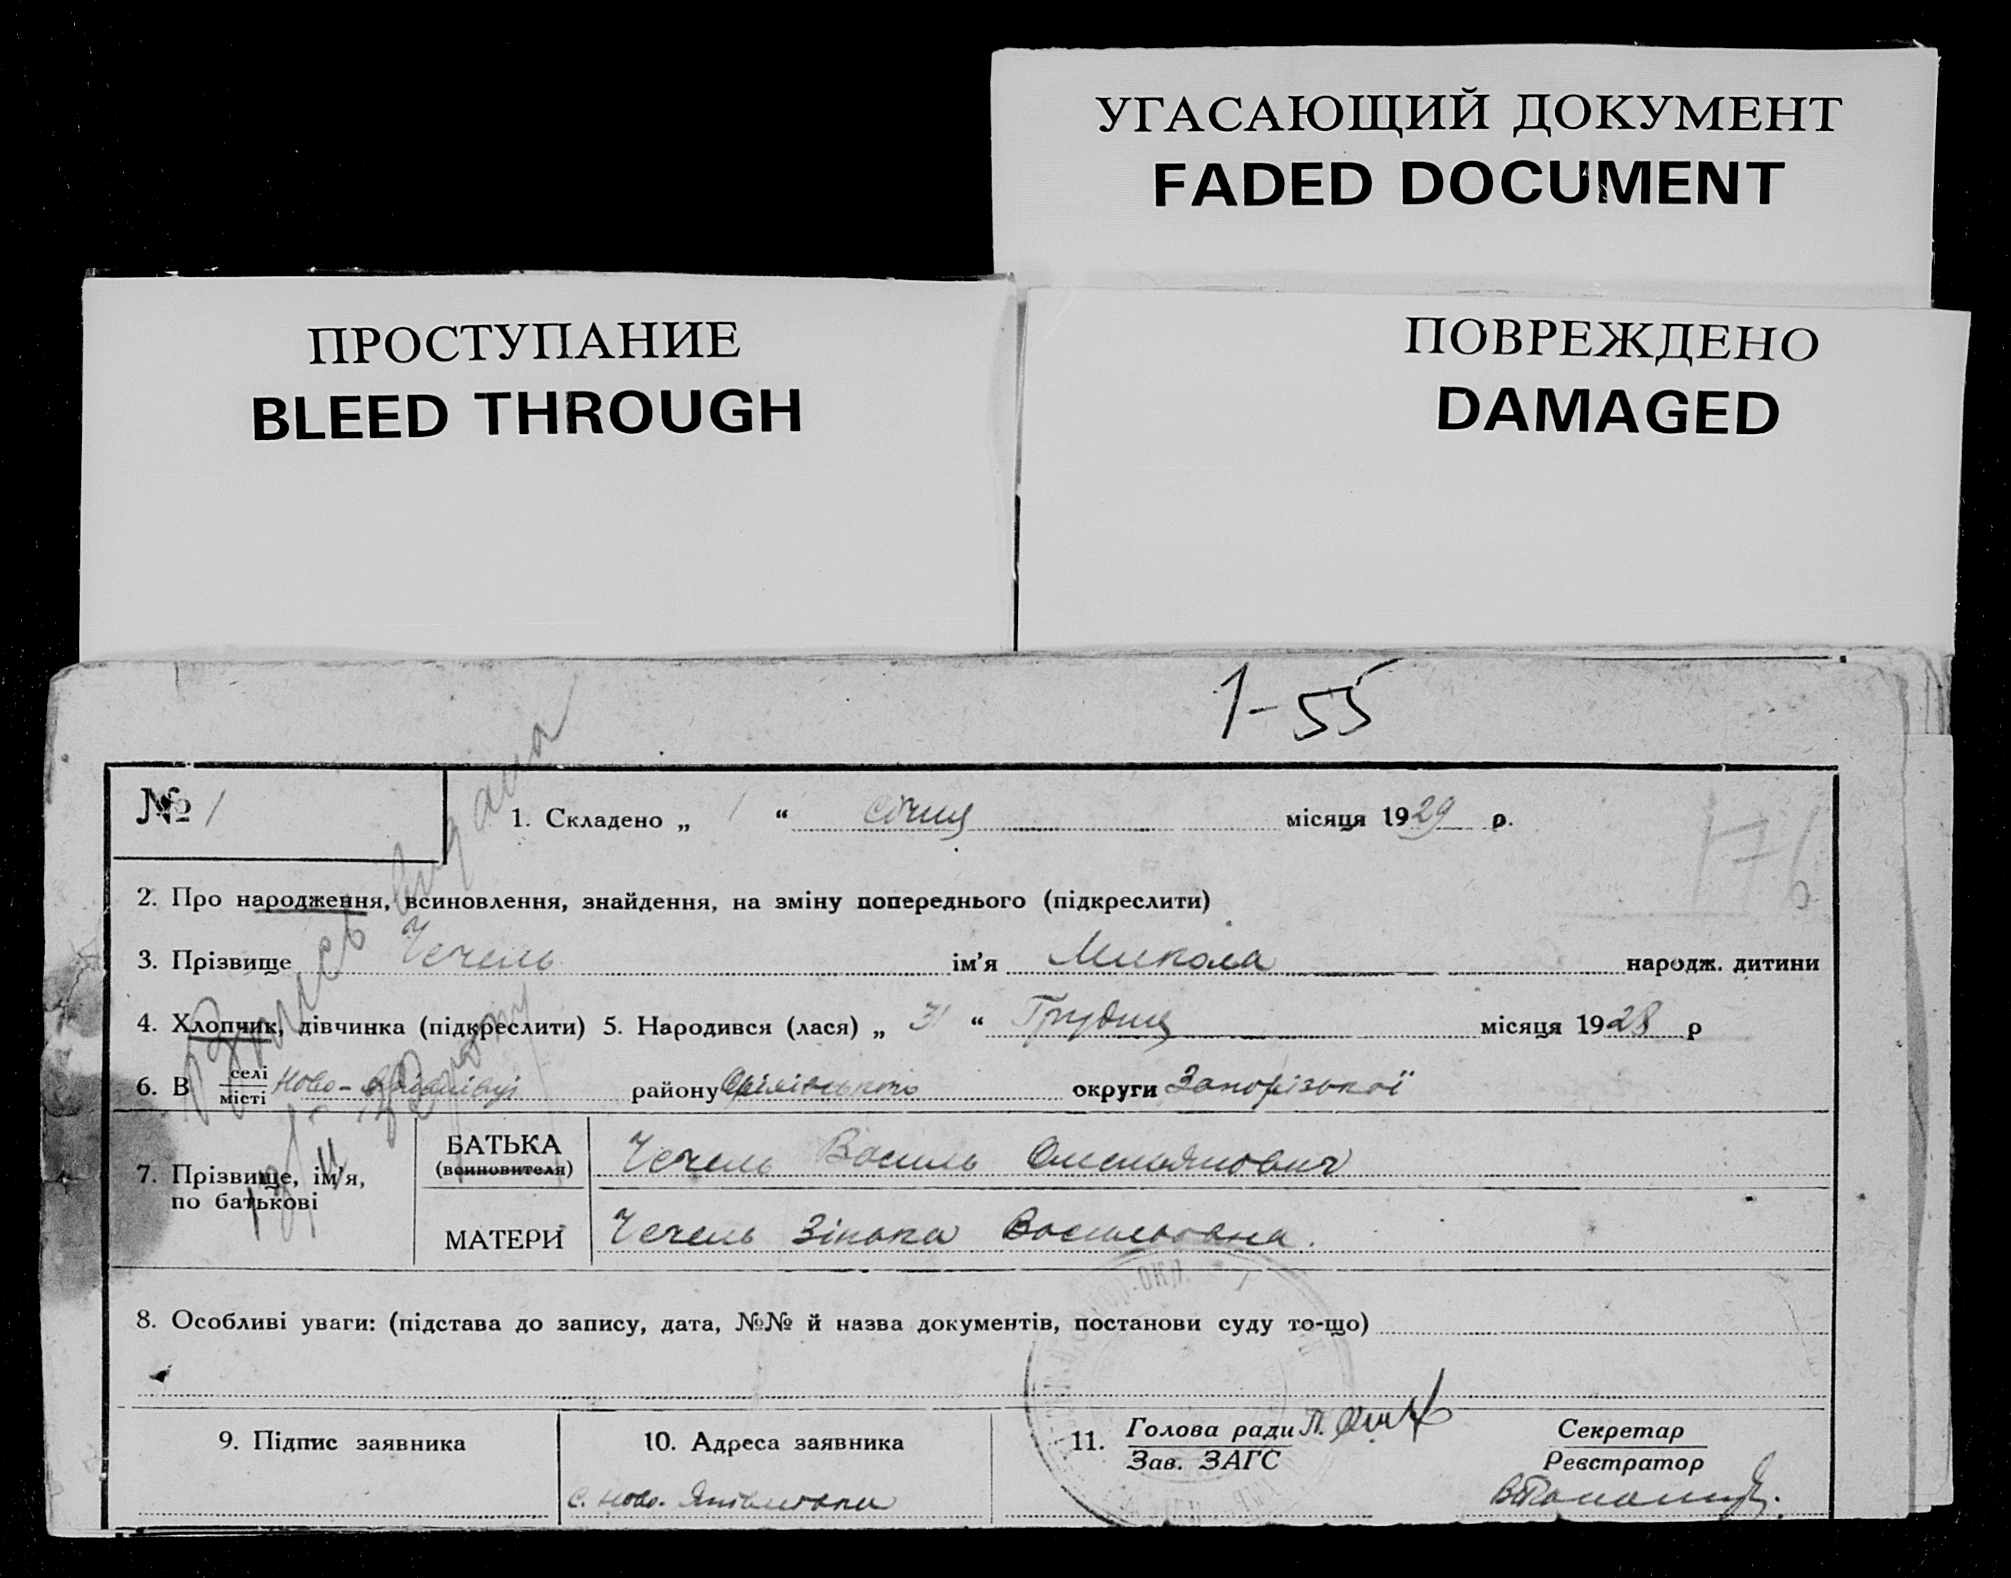 УГАСАЮЩИЙ ДОКУМЕНТ
FADED DOCUMENT
ПРОСТУПАНИЕ
BLEED THROUGH
ПОВРЕЖДЕНО
DAMAGED
1-55
№ 1
1. Складено „ 1 “ січня місяця 1929 р.
2. Про народження, всиновлення, знайдення, на зміну попереднього (підкреслити)
3. Прізвище Чечель ім’я Микола народж. дитини
4. Хлопчик, дівчинка (підкреслити) 5. Народився (лася) „ 31 “ Грудня місяця 1928 р
6. В селі місті Ново- району округи Запорізької
7. Прізвище, ім’я, по батькові
БАТЬКА (всиновителя) Чечель Василь Омельянович
МАТЕРИ Чечель Зінька Васильовна.
8. Особливі уваги: (підстава до запису, дата, №№ й назва документів, постанови суду то-що)
9. Підпис заявника
10. Адреса заявника
с. Ново-
11. Голова ради Зав. ЗАГС
Секретар Реєстратор